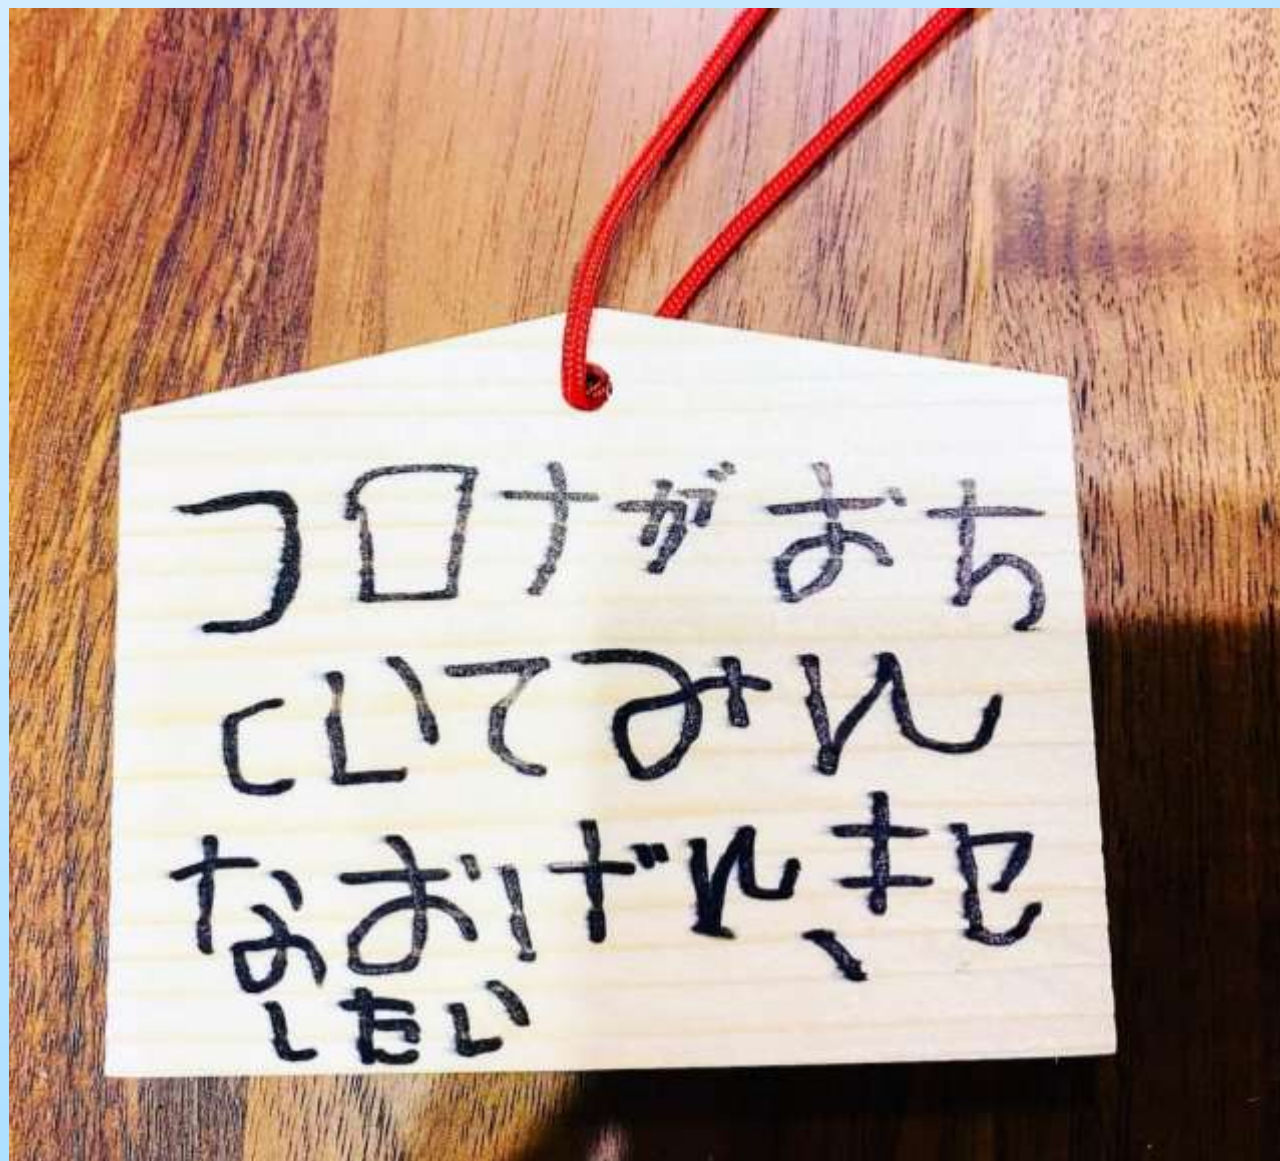 コロナがおち
ついてみん
なおげんきせ
したい